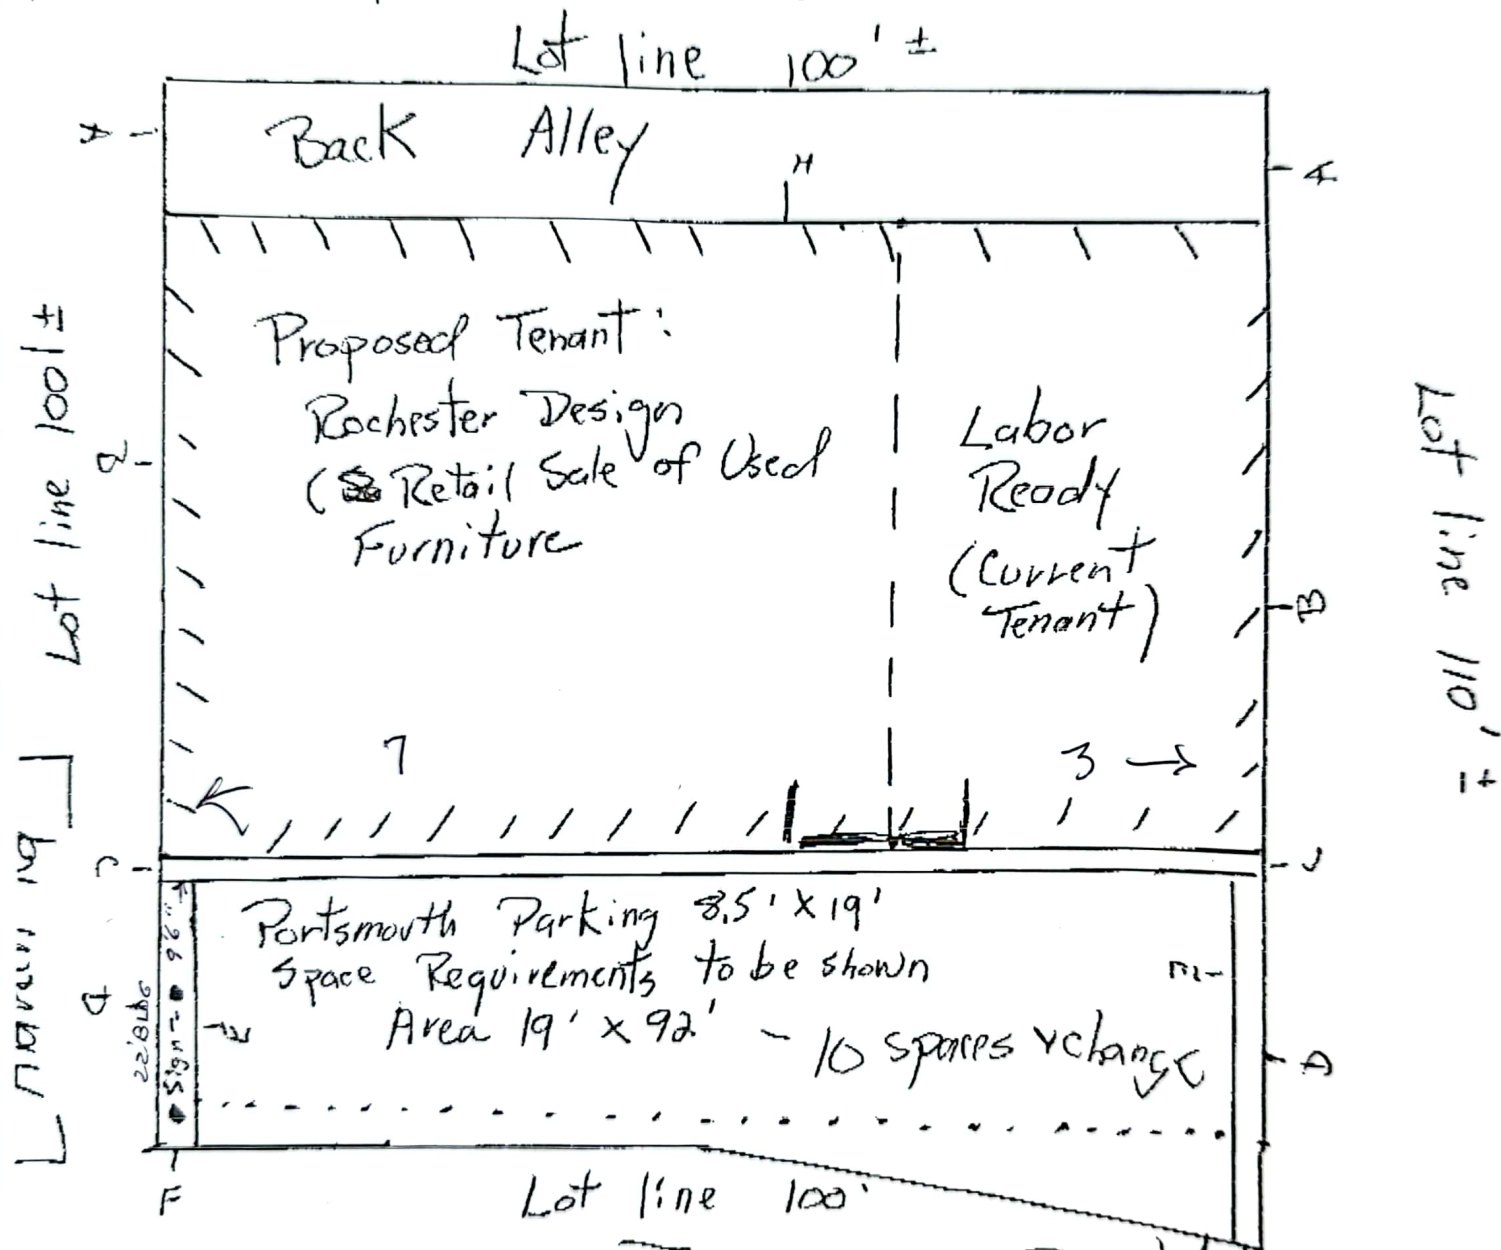 Lot line 100' ±
Back Alley
H
A
A
Proposed Tenant:
Rochester Design
(Retail Sale of Used
Furniture
Labor
Ready
(Current
Tenant)
Lot line 100' ±
Lot line 110' ±
B
7
3 →
C
Portsmouth Parking 8.5' X 19'
Space Requirements to be shown
Area 19' x 92' - 10 spaces
E
E
D
96"
Sign
22' BLDG
F
Lot line 100'